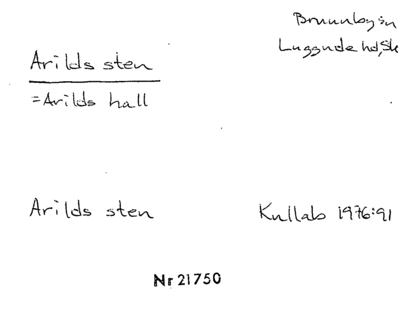 Brunnby sn
Luggude hd, Sk
Arilds sten
=Arilds hall
Arilds sten
Kullab 1976:91
Nr 21750